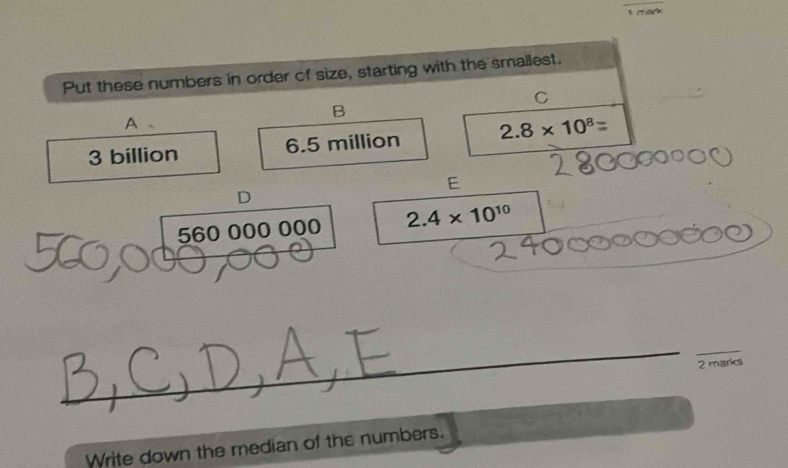 1 mark
Put these numbers in order of size, starting with the smallest.
A B C
3 billion 6.5 million 2.8 × 10⁸ =
280000000
D E
560 000 000 2.4 × 10¹⁰
560,000,000 24000000000
B, C, D, A, E
2 marks
Write down the median of the numbers.